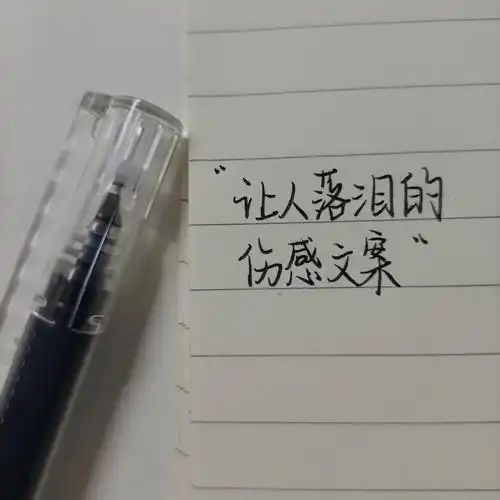 "让人落泪的
伤感文案"